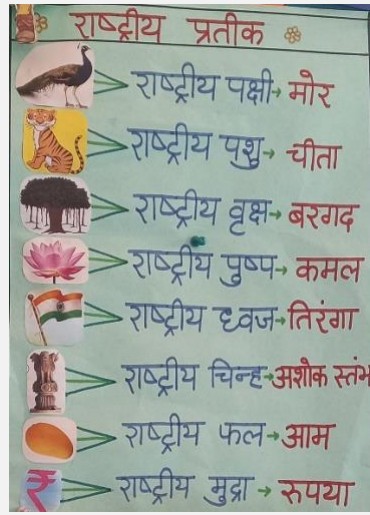 राष्ट्रीय प्रतीक
राष्ट्रीय पक्षी→ मोर
राष्ट्रीय पशु→ चीता
राष्ट्रीय वृक्ष→ बरगद
राष्ट्रीय पुष्प→ कमल
राष्ट्रीय ध्वज→तिरंगा
राष्ट्रीय चिन्ह→अशोक स्तंभ
राष्ट्रीय फल→आम
₹ राष्ट्रीय मुद्रा → रुपया